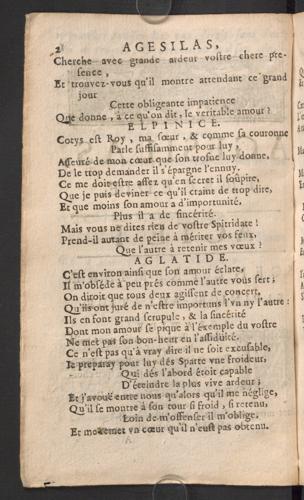 2 AGESILAS,
Cherche avec grande ardeur vostre chere pre-
sence,
Et trouvez-vous qu'il montre attendant ce grand
jour
Cette obligeante impatience
Que donne, à ce qu'on dit, le veritable amour?
ELPINICE.
Cotys est Roy, ma sœur, & comme sa couronne
Parle suffisamment pour luy,
Asseuré de mon cœur que son trosne luy donne,
De le trop demander il s'épargne l'ennuy.
Ce me doit estre assez qu'en secret il soûpire,
Que je puis deviner ce qu'il craint de trop dire,
Et que moins son amour a d'importunité,
Plus il a de sincérité.
Mais vous ne dites rien de vostre Spitridate!
Prend-il autant de peine à mériter vos feux,
Que l'autre à retenir mes vœux?
AGLATIDE.
C'est environ ainsi que son amour éclate,
Il m'obséde à peu prés comme l'autre vous sert;
On diroit que tous deux agissent de concert,
Qu'ils ont juré de n'estre importuns l'vn ny l'autre:
Ils en font grand scrupule, & la sincérité
Dont mon amour se pique à l'éxemple du vostre
Ne met pas son bon-heur en l'assiduité.
Ce n'est pas qu'à vray dire il ne soit excusable,
Je préparay pour luy dés Sparte vne froideur,
Qui dés l'abord étoit capable
D'éteindre la plus vive ardeur;
Et j'avouë entre nous qu'alors qu'il me néglige,
Qu'il se montre à son tour si froid, si retenu,
Loin de m'offenser il m'oblige,
Et me remet vn cœur qu'il n'eust pas obtenu.